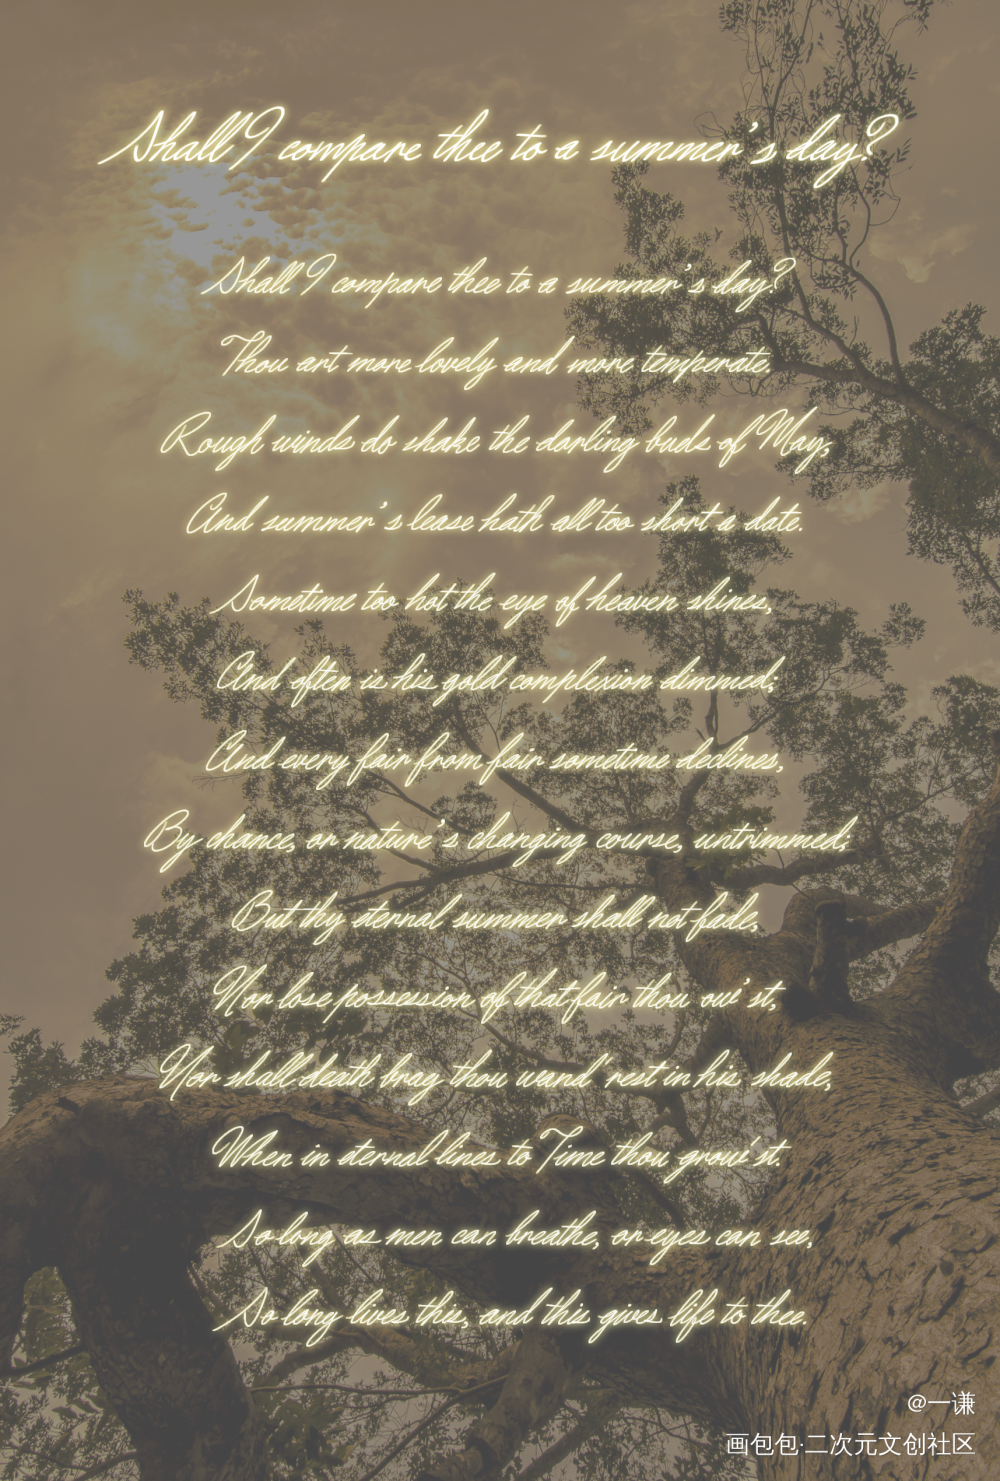 Shall I compare thee to a summer's day?
Shall I compare thee to a summer's day?
Thou art more lovely and more temperate.
Rough winds do shake the darling buds of May,
And summer's lease hath all too short a date.
Sometime too hot the eye of heaven shines,
And often is his gold complexion dimmed;
And every fair from fair sometime declines,
By chance, or nature's changing course, untrimmed;
But thy eternal summer shall not fade,
Nor lose possession of that fair thou ow'st,
Nor shall death brag thou wand'rest in his shade,
When in eternal lines to Time thou grow'st.
So long as men can breathe, or eyes can see,
So long lives this, and this gives life to thee.
@一谦
画包包·二次元文创社区